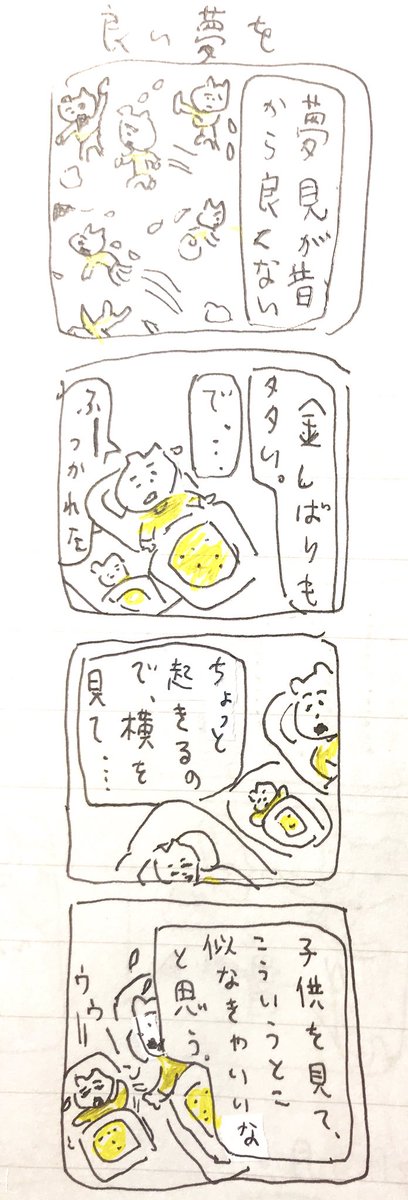 良い夢を
夢見が昔
から良くない
金しばりも
多い。
で、…
ふーつかれた
ちょっと
起きるの
で、横を
見て…
子供を見て、
こういうとこ
似なきゃいいな
と思う。
ウゥ